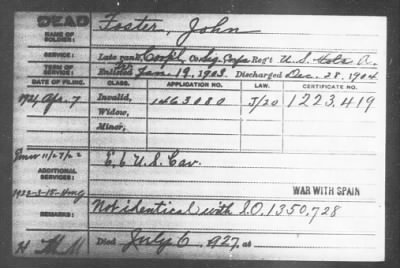 DEAD
NAME OF SOLDIER: Foster, John
SERVICE: Late rank, Corpl, Co. Sig. Corps Reg't U.S. Vols. A.
TERM OF SERVICE: Enlisted Jan. 19, 1903. Discharged Dec. 28, 1904
DATE OF FILING. CLASS. APPLICATION NO. LAW. CERTIFICATE NO.
1924 Apr. 7 Invalid, 1463080 J/20 1223,419
Widow,
Minor,
ADDITIONAL SERVICES: E. 6 U.S. Cav.
WAR WITH SPAIN
REMARKS: Not identical with S.O. 1350,728
Died July 6, 1927, at